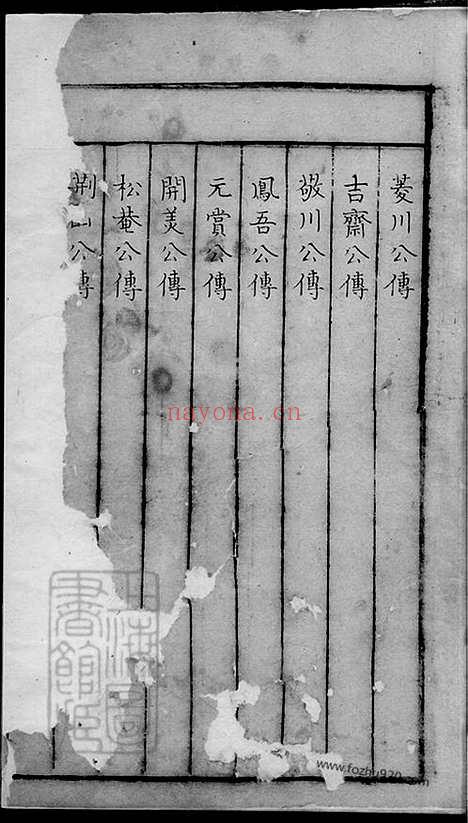 菱川公傳
吉齋公傳
敬川公傳
鳳吾公傳
元賞公傳
開美公傳
松菴公傳
荆山公傳
nayona.cn
www.fozhu920.com